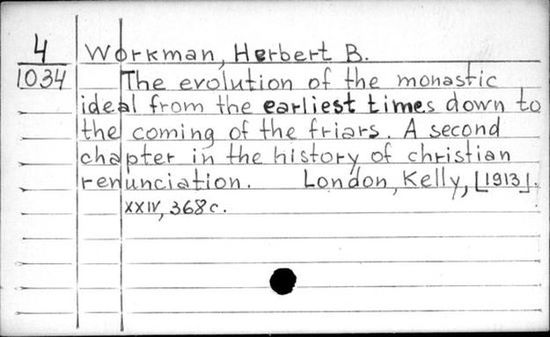 4 Workman, Herbert B.
1034 The evolution of the monastic
ideal from the earliest times down to
the coming of the friars. A second
chapter in the history of christian
renunciation. London, Kelly, [1913].
XXIV, 368c.